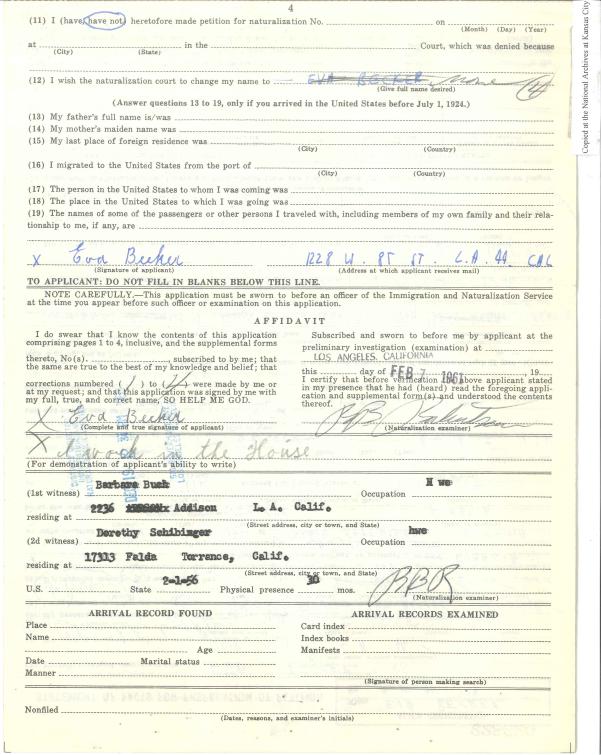 4
(11) I (have) (have not) heretofore made petition for naturalization No. on
(Month) (Day) (Year)
at in the Court, which was denied because
(City) (State)
(12) I wish the naturalization court to change my name to EVA BECKER None (4)
(Give full name desired)
(Answer questions 13 to 19, only if you arrived in the United States before July 1, 1924.)
(13) My father's full name is/was
(14) My mother's maiden name was
(15) My last place of foreign residence was
(City) (Country)
(16) I migrated to the United States from the port of
(City) (Country)
(17) The person in the United States to whom I was coming was
(18) The place in the United States to which I was going was
(19) The names of some of the passengers or other persons I traveled with, including members of my own family and their rela-
tionship to me, if any, are
X Eva Becker 1228 W. 85 ST. L.A. 44. CAL
(Signature of applicant) (Address at which applicant receives mail)
TO APPLICANT: DO NOT FILL IN BLANKS BELOW THIS LINE.
NOTE CAREFULLY.—This application must be sworn to before an officer of the Immigration and Naturalization Service
at the time you appear before such officer or examination on this application.
AFFIDAVIT
I do swear that I know the contents of this application
comprising pages 1 to 4, inclusive, and the supplemental forms
thereto, No(s). , subscribed to by me; that
the same are true to the best of my knowledge and belief; that
corrections numbered (1) to (4) were made by me or
at my request; and that this application was signed by me with
my full, true, and correct name, SO HELP ME GOD.
X Eva Becker
(Complete and true signature of applicant)
Subscribed and sworn to before me by applicant at the
preliminary investigation (examination) at
LOS ANGELES, CALIFORNIA
this day of FEB 7 1961, 19
I certify that before verification the above applicant stated
in my presence that he had (heard) read the foregoing appli-
cation and supplemental form(s) and understood the contents
thereof.
(Naturalization examiner)
X I work in the House
(For demonstration of applicant's ability to write)
Barbara Buch H we
(1st witness) Occupation
2236 Addison L.A. Calif.
residing at
(Street address, city or town, and State)
Dorothy Schibinger hwe
(2d witness) Occupation
17313 Falda Torrance, Calif.
residing at
(Street address, city or town, and State)
2-1-56 30
U.S. State Physical presence mos. RBR
(Naturalization examiner)
ARRIVAL RECORD FOUND
Place
Name
Age
Date Marital status
Manner
ARRIVAL RECORDS EXAMINED
Card index
Index books
Manifests
(Signature of person making search)
Nonfiled
(Dates, reasons, and examiner's initials)
Copied at the National Archives at Kansas City